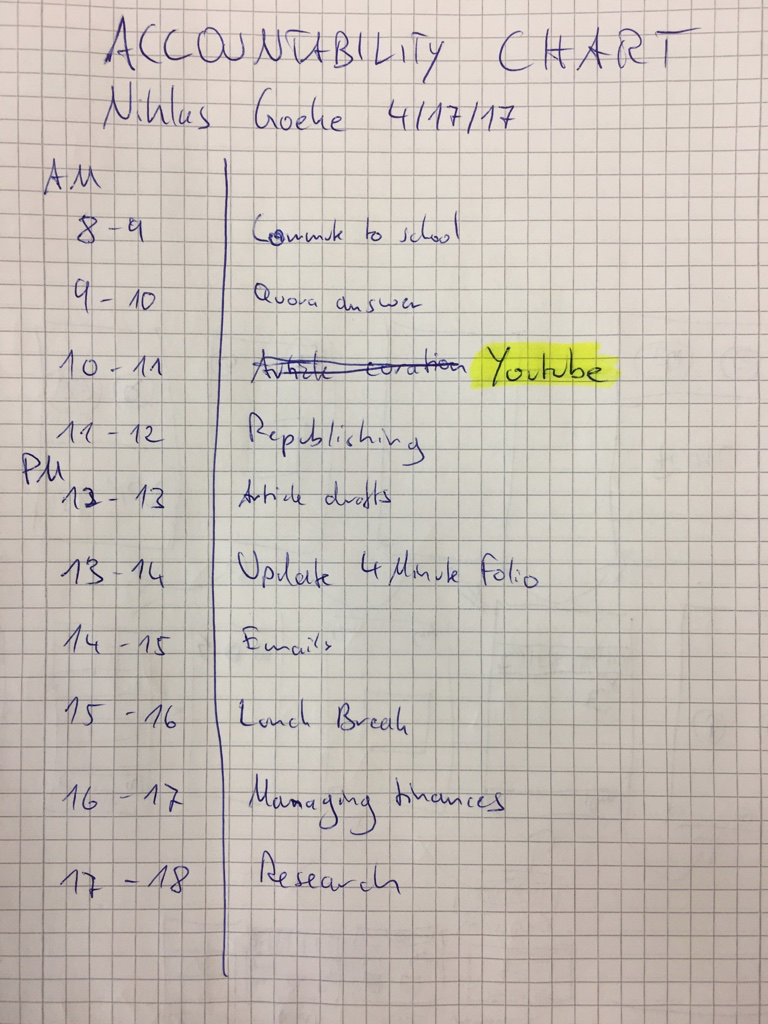 ACCOUNTABILITY CHART
Niklas Goeke 4/17/17
AM
8 - 9 Commute to school
9 - 10 Quora answer
10 - 11 Article curation Youtube
11 - 12 Republishing
PM
12 - 13 Article drafts
13 - 14 Update 4 Minute Folio
14 - 15 Emails
15 - 16 Lunch Break
16 - 17 Managing finances
17 - 18 Research